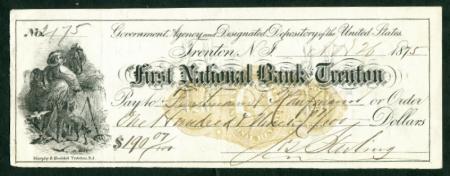 No. 2175
Government Agency and Designated Depository of the United States.
Trenton, N.J. 26 1875
First National Bank Trenton
Pay to or Order
One Hundred & Ninety 07/100 Dollars
$190 07/100
Murphy & Bechtel Trenton, N.J.